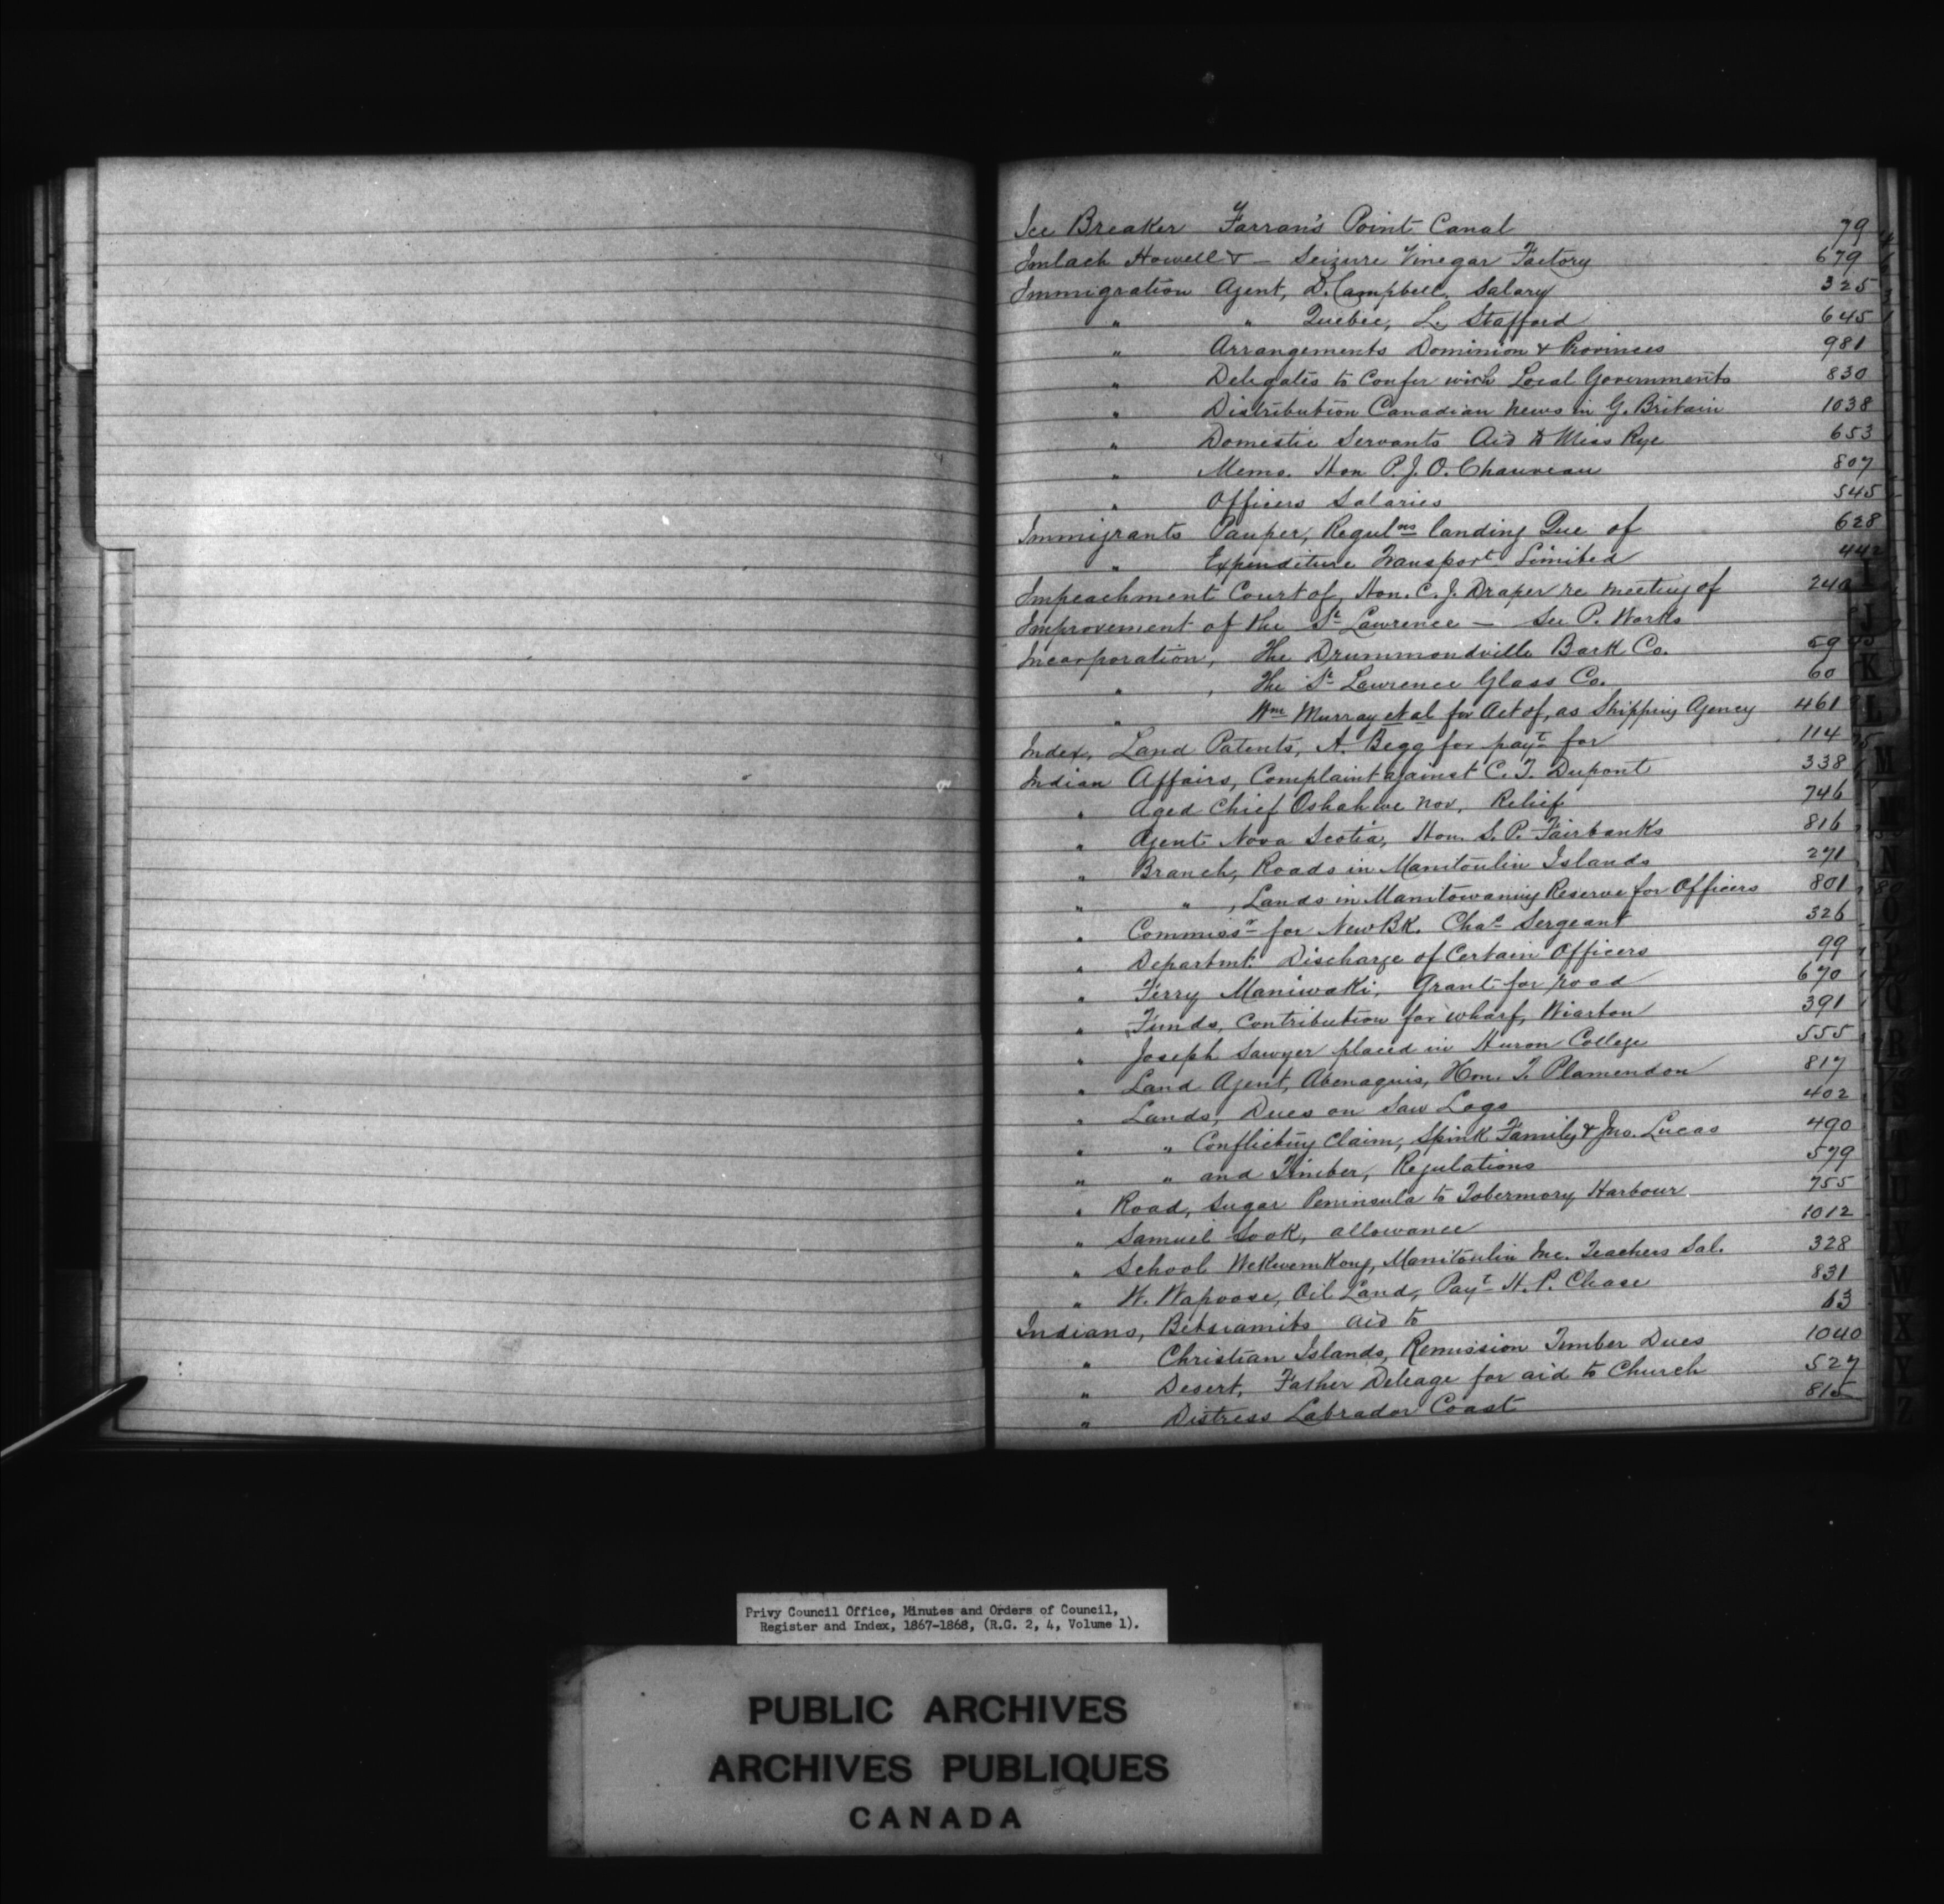 Ice Breaker Farran's Point Canal 79
Imlach Howell & — Seizure Vinegar Factory 679
Immigration Agent, D. Campbell. Salary 325
" " Quebec, L. Stafford 645
" Arrangements Dominion & Provinces 981
" Delegates to Confer with Local Governments 830
" Distribution Canadian News in G. Britain 1038
" Domestic Servants Aid to Miss Rye 653
" Memo. Hon P. J. O. Chauveau 807
" Officers Salaries 545
Immigrants Pauper, Regulns landing Que of 628
" Expenditure Transport Limited 442
Impeachment Court of, Hon. C. J. Draper re meeting of 240
Improvement of the St Lawrence — See P. Works
Incorporation, The Drummondville Bark Co. 59
" , The St Lawrence Glass Co. 60
" Wm Murray et al for Act of, as Shipping Agency 461
Index, Land Patents, A. Begg for payt for 114
Indian Affairs, Complaint against C. T. Dupont 338
" Aged Chief Oshahwe nov, Relief 746
" Agent Nova Scotia, Hon. S. P. Fairbanks 816
" Branch, Roads in Manitoulin Islands 271
" " , Lands in Manitowaning Reserve for Officers 801
" Commissr for New Bk. Chas Sergeant 326
" Departmt. Discharge of Certain Officers 99
" Ferry Maniwaki, Grant for road 670
" Funds, Contribution for wharf, Wiarton 391
" Joseph Sawyer placed in Huron College 555
" Land Agent, Abenaquis, Hon. T. Plamendon 817
" Lands, Dues on Saw Logs 402
" " Conflicting Claim, Spink Family & Jno. Lucas 490
" " and Timber, Regulations 579
" Road, Sugar Peninsula to Tobermory Harbour 755
" Samuel Sook, allowance 1012
" School Wekwemkong, Manitoulin Inc. Teachers Sal. 328
" W. Wapoose, Oil Land, Payt H. P. Chase 831
Indians, Betsiamits aid to 63
" Christian Islands, Remission Timber Dues 1040
" Desert, Father Deleage for aid to Church 527
" Distress Labrador Coast 815
I
J
K
L
M
N
Q
R
S
W
X
Y
Z
Privy Council Office, Minutes and Orders of Council,
Register and Index, 1867-1868, (R.G. 2, 4, Volume 1).
PUBLIC ARCHIVES
ARCHIVES PUBLIQUES
CANADA